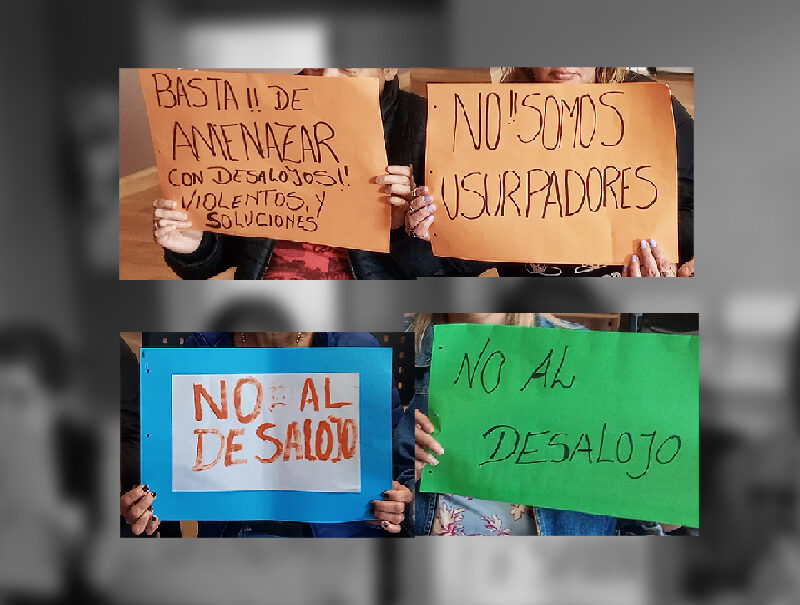 BASTA!! DE
AMENAZAR
CON DESALOJOS!!
VIOLENTOS, Y
SOLUCIONES
NO!! SOMOS
USURPADORES
NO AL
DESALOJO
NO AL
DESALOJO